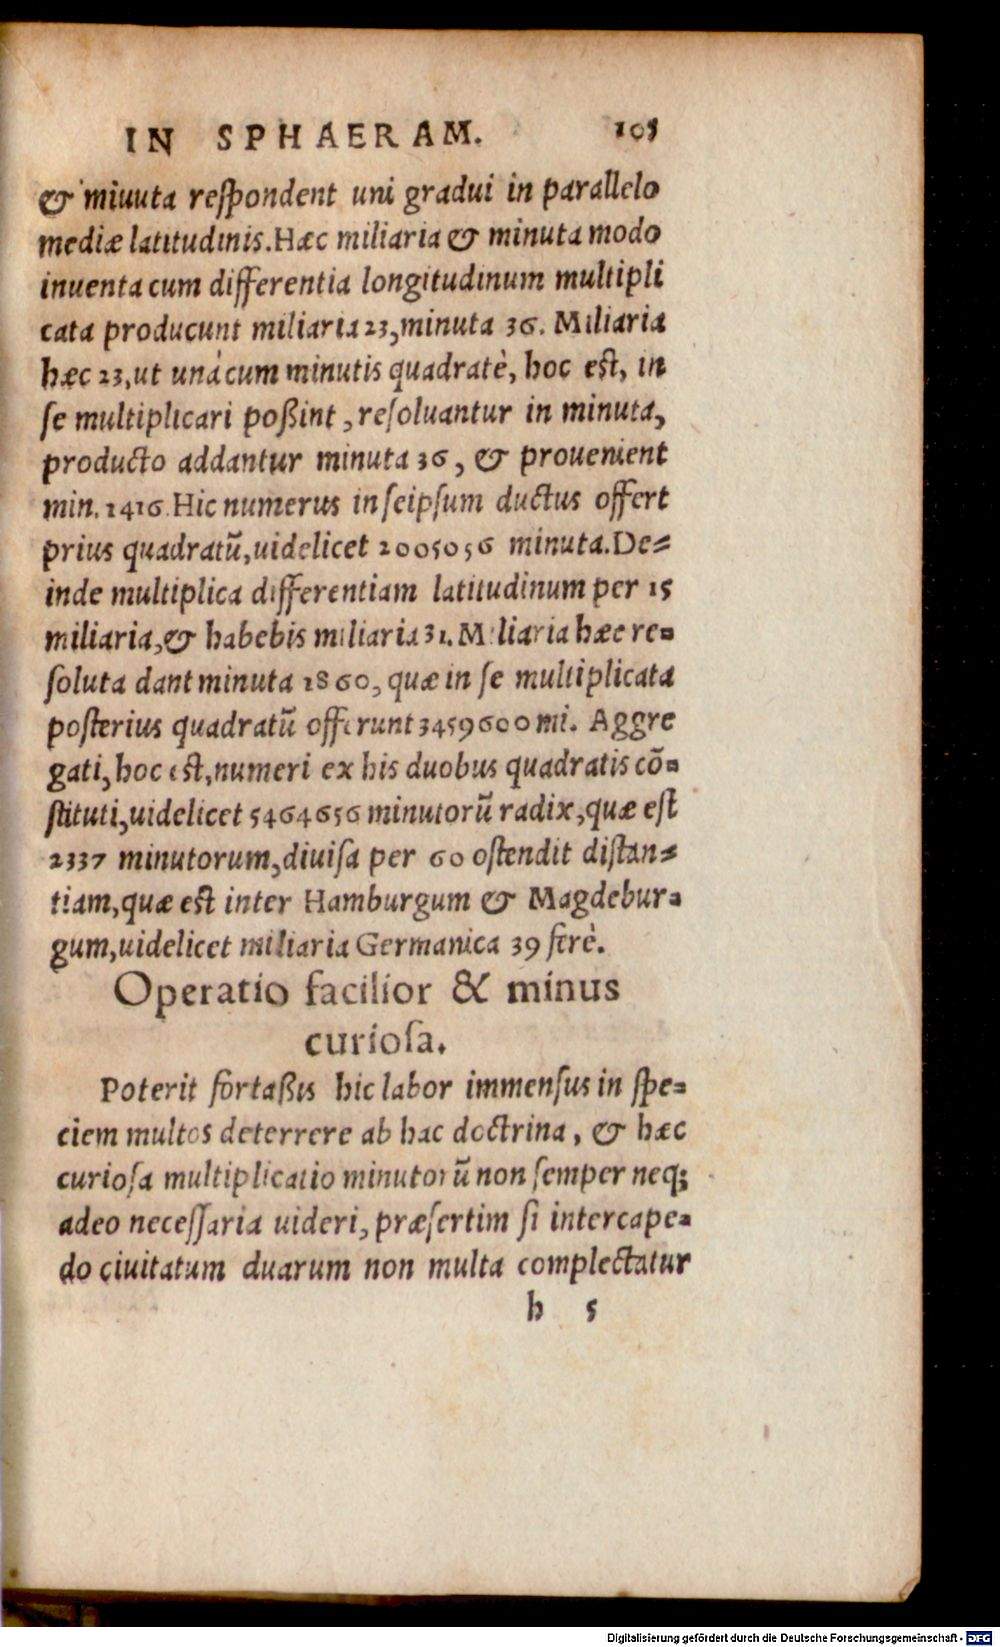 IN SPHAERAM. 105
& miuuta reſpondent uni gradui in parallelo
mediæ latitudinis. Hæc miliaria & minuta modo
inuenta cum differentia longitudinum multipli
cata producunt miliaria 23, minuta 36. Miliaria
hæc 23, ut unà cum minutis quadratè, hoc est, in
ſe multiplicari poßint, reſoluantur in minuta,
producto addantur minuta 36, & prouenient
min. 1416. Hic numerus in ſeipſum ductus offert
prius quadratũ, uidelicet 2005056 minuta. De=
inde multiplica differentiam latitudinum per 15
miliaria, & habebis miliaria 31. Miliaria hæc re=
ſoluta dant minuta 1860, quæ in ſe multiplicata
posterius quadratũ offerunt 3459600 mi. Aggre
gati, hoc est, numeri ex his duobus quadratis cõ=
ſtituti, uidelicet 5464656 minutorũ radix, quæ eſt
2337 minutorum, diuiſa per 60 oſtendit diſtan=
tiam, quæ est inter Hamburgum & Magdebur=
gum, uidelicet miliaria Germanica 39 ferè.
Operatio facilior & minus
curioſa.
Poterit fortaßis hic labor immenſus in ſpe=
ciem multos deterrere ab hac doctrina, & hæc
curioſa multiplicatio minutorũ non ſemper neq;
adeo neceſſaria uideri, præſertim ſi intercape=
do ciuitatum duarum non multa complectatur
h 5
Digitalisierung gefördert durch die Deutsche Forschungsgemeinschaft - DFG